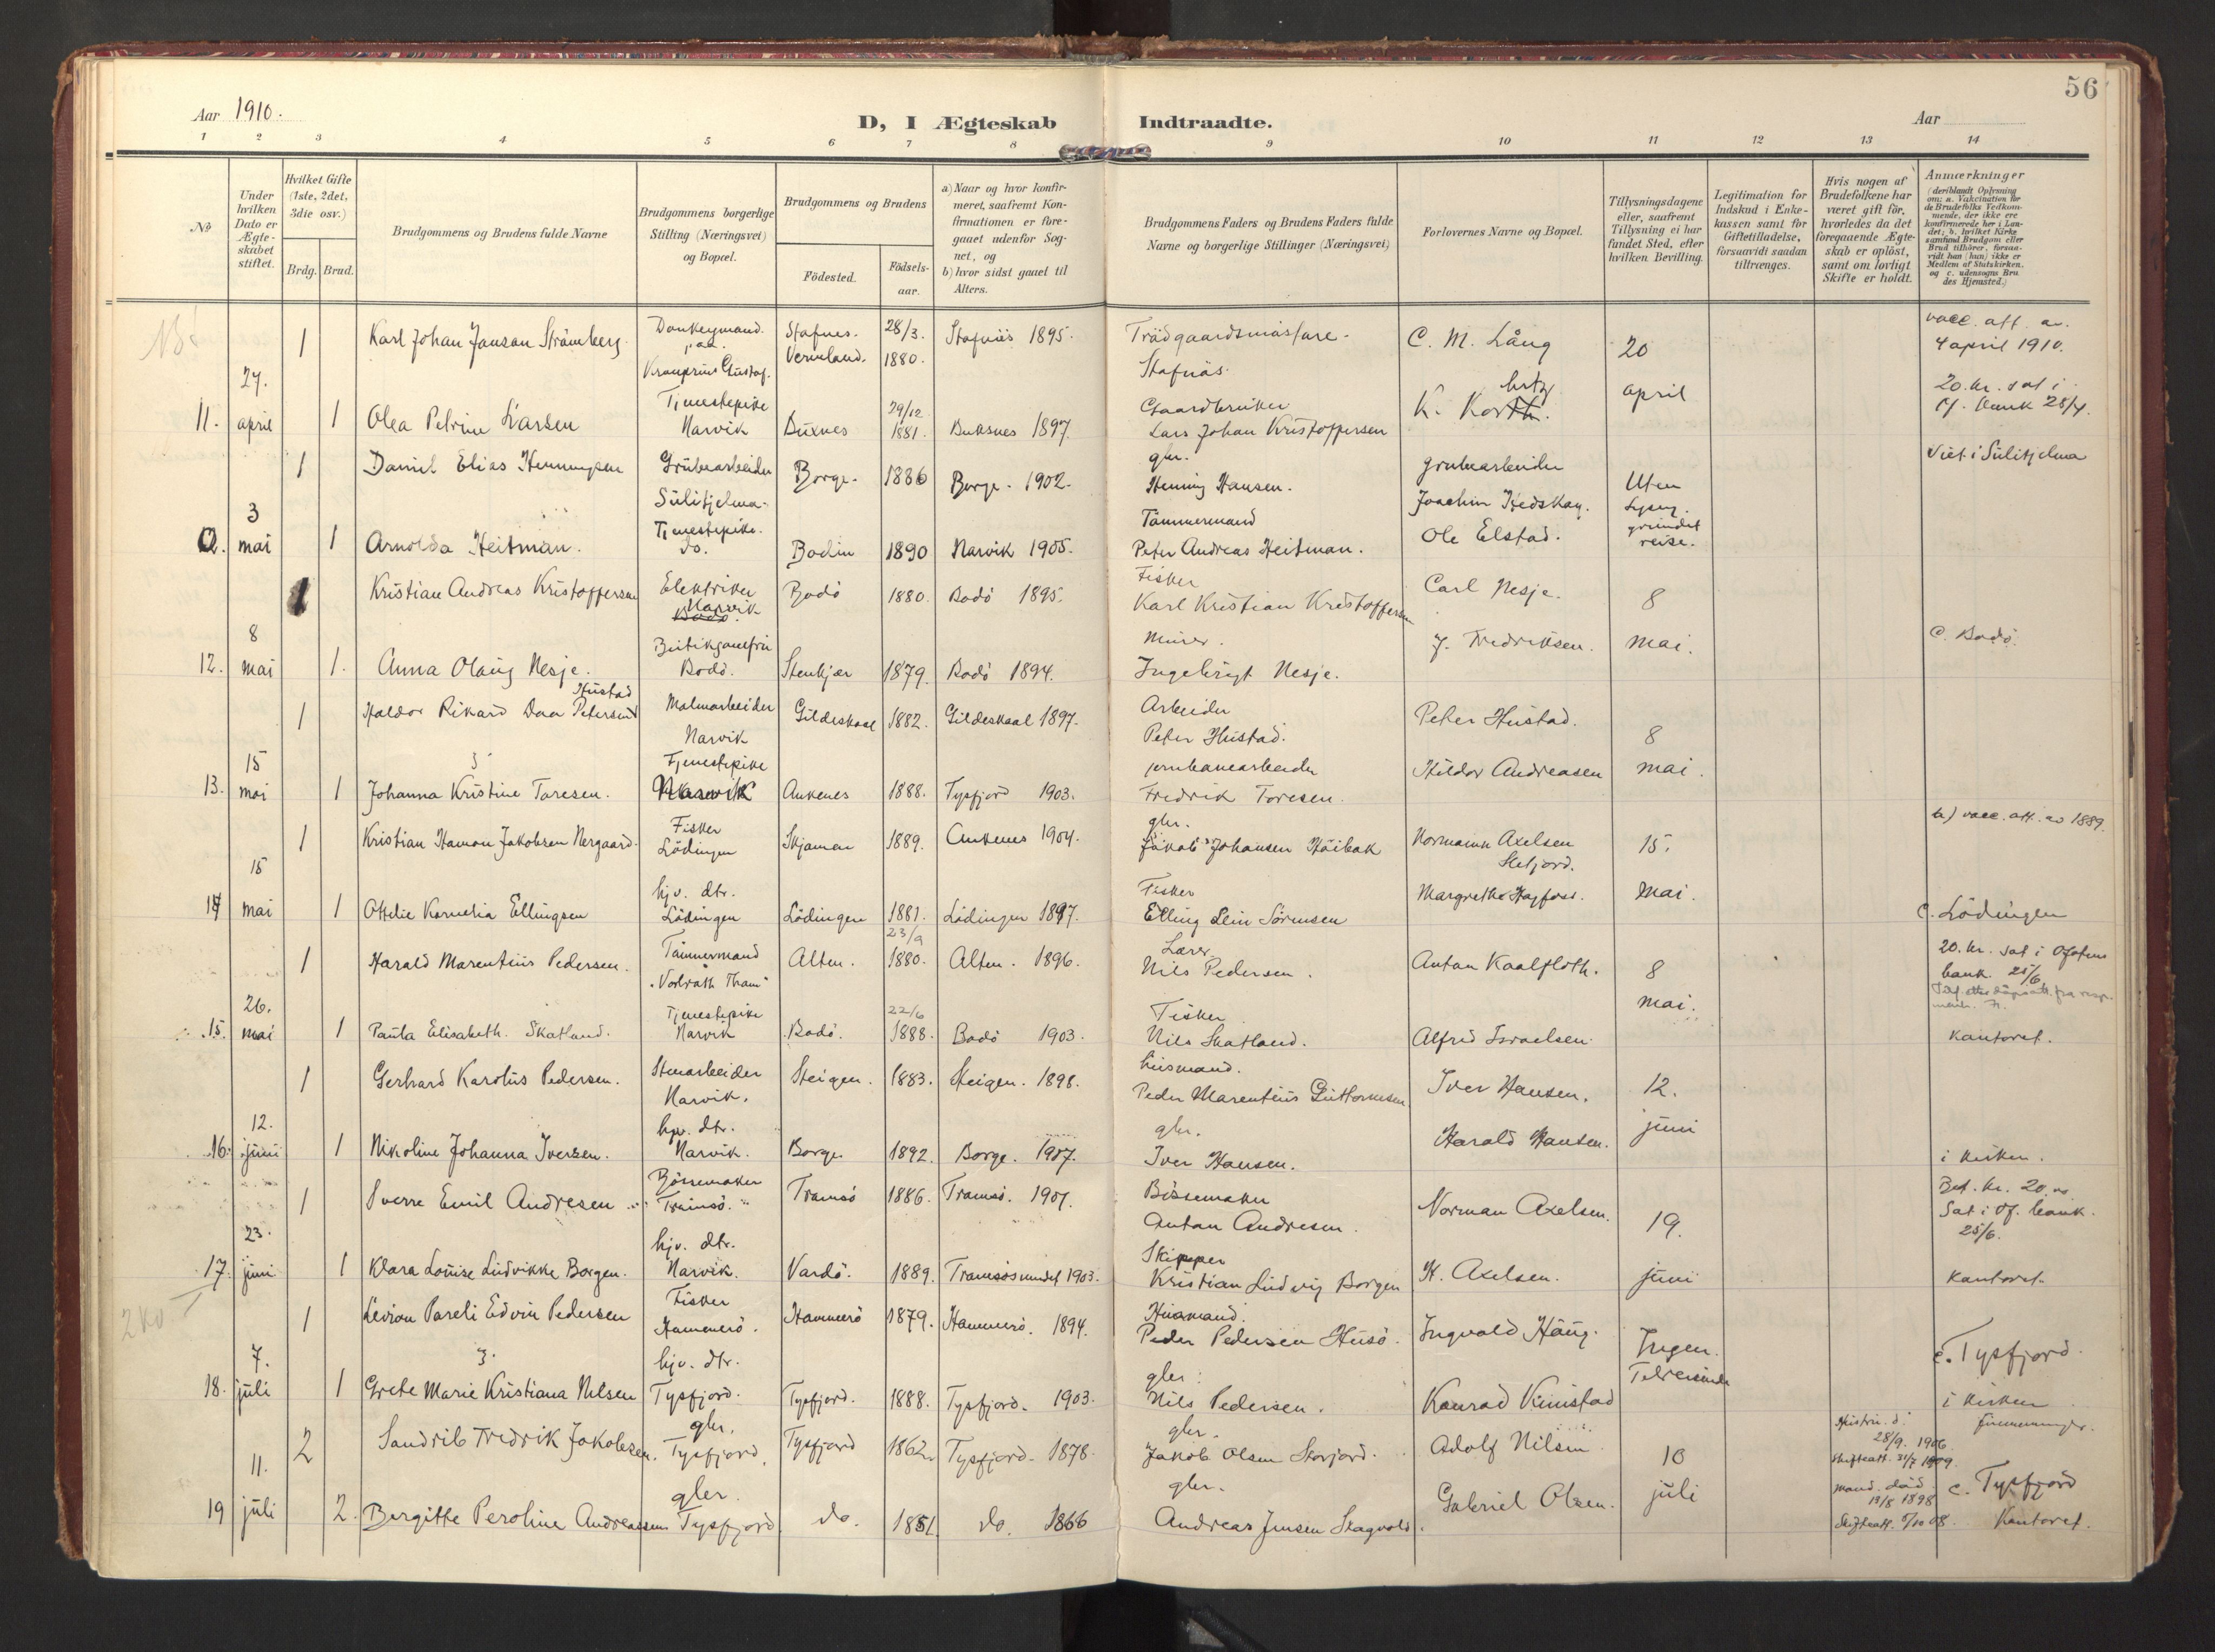 56
Aar 1910.
D, I Ægteskab Indtraadte.
Aar
1 2 3 4 5 6 7 8 9 10 11 12 13 14
No
Under hvilken Dato er Ægteskabet stiftet.
Hvilket Gifte (1ste, 2det, 3die osv.)
Brdg. Brud.
Brudgommens og Brudens fulde Navne
Brudgommens borgerlige Stilling (Næringsvei) og Bopæl.
Brudgommens og Brudens
Födested.
Födsels-aar.
a) Naar og hvor konfirmeret, saafremt Konfirmationen er foregaaet udenfor Sognet, og
b) hvor sidst gaaet til Alters.
Brudgommens Faders og Brudens Faders fulde Navne og borgerlige Stillinger (Næringsvei)
Forlovernes Navne og Bopæl.
Tillysningsdagene eller, saafremt Tillysning ei har fundet Sted, efter hvilken Bevilling.
Legitimation for Indskud i Enkekassen samt for Giftetilladelse, forsaavidt saadan tiltrænges.
Hvis nogen af Brudefolkene har været gift för, hvorledes da det foregaaende Ægteskab er oplöst, samt om lovligt Skifte er holdt.
Anmærkninger
(deriblandt Oplysning om: a. Vakcination for de Brudefolks Vedkommende, der ikke ere konfirmerede her i Landet; b. hvilket Kirkesamfund Brudgom eller Brud tilhörer, forsaavidt han (hun) ikke er Medlem af Statskirken. og c. udensogns Brudes Hjemsted.)
1 Karl Johan Jansan Strämberg Donkeymand. paa Kronprins Gustaf. Stafnes. Vermland. 28/3. 1880. Stafnäs 1895. Trädgaardsmästare. Stafnäs. C. M. Lång 20 vacc. att. av. 4 april 1910.
11. 27. april 1 Olea Petrine Larsen Tjenestepike Narvik Buxnes 29/12 1881. Buksnes 1897. Gaardbruker Lars Johan Kristoffersen K. april 20. kr. sat i Of. bank 28/4.
1 Daniel Elias Henningsen Grubearbeider Sulitjelma. Borge. 1886 Borge. 1902. gbr. Henning Hansen. grubearbeider Joachim Hedskag. Uten Viet i Sulitjelma
3 mai 1 Arnolda Heitman. Tjenestepike. do. Bodin 1890 Narvik 1905. Tömmermand Peter Andreas Heitman. Ole Elstad. grundet reise.
1 Kristian Andreas Kristoffersen Elektriker Narvik Bodö. Bodö 1880. Bodö 1895. Fisker Karl Kristian Kristoffersen Carl Nesje. 8
12. 8 mai 1. Anna Olaug Nesje. Bodö. Stenkjær 1879. Bodö 1894. Murer. Ingebrigt Nesje. J. Fredriksen. mai. C. Bodö.
1 Haldor Rikard Daa Petersen Hustad Malmarbeider Narvik Gildeskaal 1882. Gildeskaal 1897. Arbeider Peter Hustad. Peter Hustad. 8
13. 15 mai 1 Johanna Kristine Toresen. Tjenestepike Narvik Ankenes 1888. Tysfjord 1903. jernbanearbeider Fredrik Toresen. Hildor Andreasen mai.
1 Kristian Hamon Jakobsen Nergaard. Fisker Lödingen Skjomen 1889. Ankenes 1904. gbr. Jakob Johansen Normann Axelsen 15. a) vacc. att. av 1889.
14 15 mai 1 Ottelie Kornelia Ellingsen hjv. dtr. Lödingen Lödingen 1881. Lödingen 1897. Fisker Elling Sörensen Margrethe mai. C. Lödingen
1 Harald Marentius Pedersen. Tömmermand Alten. 23/9 1880. Alten. 1896. Lærer Nils Pedersen. Anton Kaalfloth. 8 20. kr. sat i Ofotens bank. 25/6
15. 26. mai 1 Paula Elisabeth. Skatland. Tjenestepike Narvik Bodö. 22/6 1888. Bodö 1903. Fisker Nils Skatland. Alfred Israelsen. mai. kontoret.
1 Gerhard Karolus Pedersen. Stenarbeider Narvik. Steigen. 1883. Steigen. 1898. husmand. Peder Marentius Guttormsen Iver Hansen. 12.
16. 12. juni 1 Nikoline Johanna Iversen. hjv. dtr. Narvik. Borge. 1892. Borge. 1907. gbr. Iver Hansen. Harald Hansen. juni i kirken.
1 Sverre Emil Andresen Börsemaker Tromsö. Tromsö 1886. Tromsö. 1901. Bössemaker Anton Andresen. Norman Axelsen. 19. Bet. kr. 20.00 Sat i Of. bank. 25/6.
17. 23. juni 1 Klara Louise Ludvikke Borgen. hjv. dtr. Narvik. Vardö. 1889. Tromsösundet 1903. Skipper Kristian Ludvig Borgen K. Axelsen. juni kontoret.
1 Pareli Edvin Pedersen Fisker Hammerö. Hammerö 1879. Hammerö. 1894. Husmand. Peder Pedersen Husö. Ingvald Haug. Ingen.
18. 7. juli 1 Grete Marie Kristiana Nilsen hjv. dtr. Tysfjord. Tysfjord. 1888. Tysfjord. 1903. gbr. Nils Pedersen. Konrad C. Tysfjord. i kirken
2 Sandrib Fredrik Jakobsen. gbr. Tysfjord. Tysfjord 1862. Tysfjord. 1878. gbr. Jakob Olsen Storjord. Adolf Nilsen 10 Hustru d. 28/9. 1906. Skifteatt. 31/7 1909.
19 11. juli 2. Bergitte Peroline Andreassen gbr. Tysfjord do. 1851. do. 1866 gbr. Andreas Jensen Skagvold. Gabriel Olsen. juli mand. död 19/8 1898 Skifteatt. 5/10 08. c. Tysfjord Kontoret.